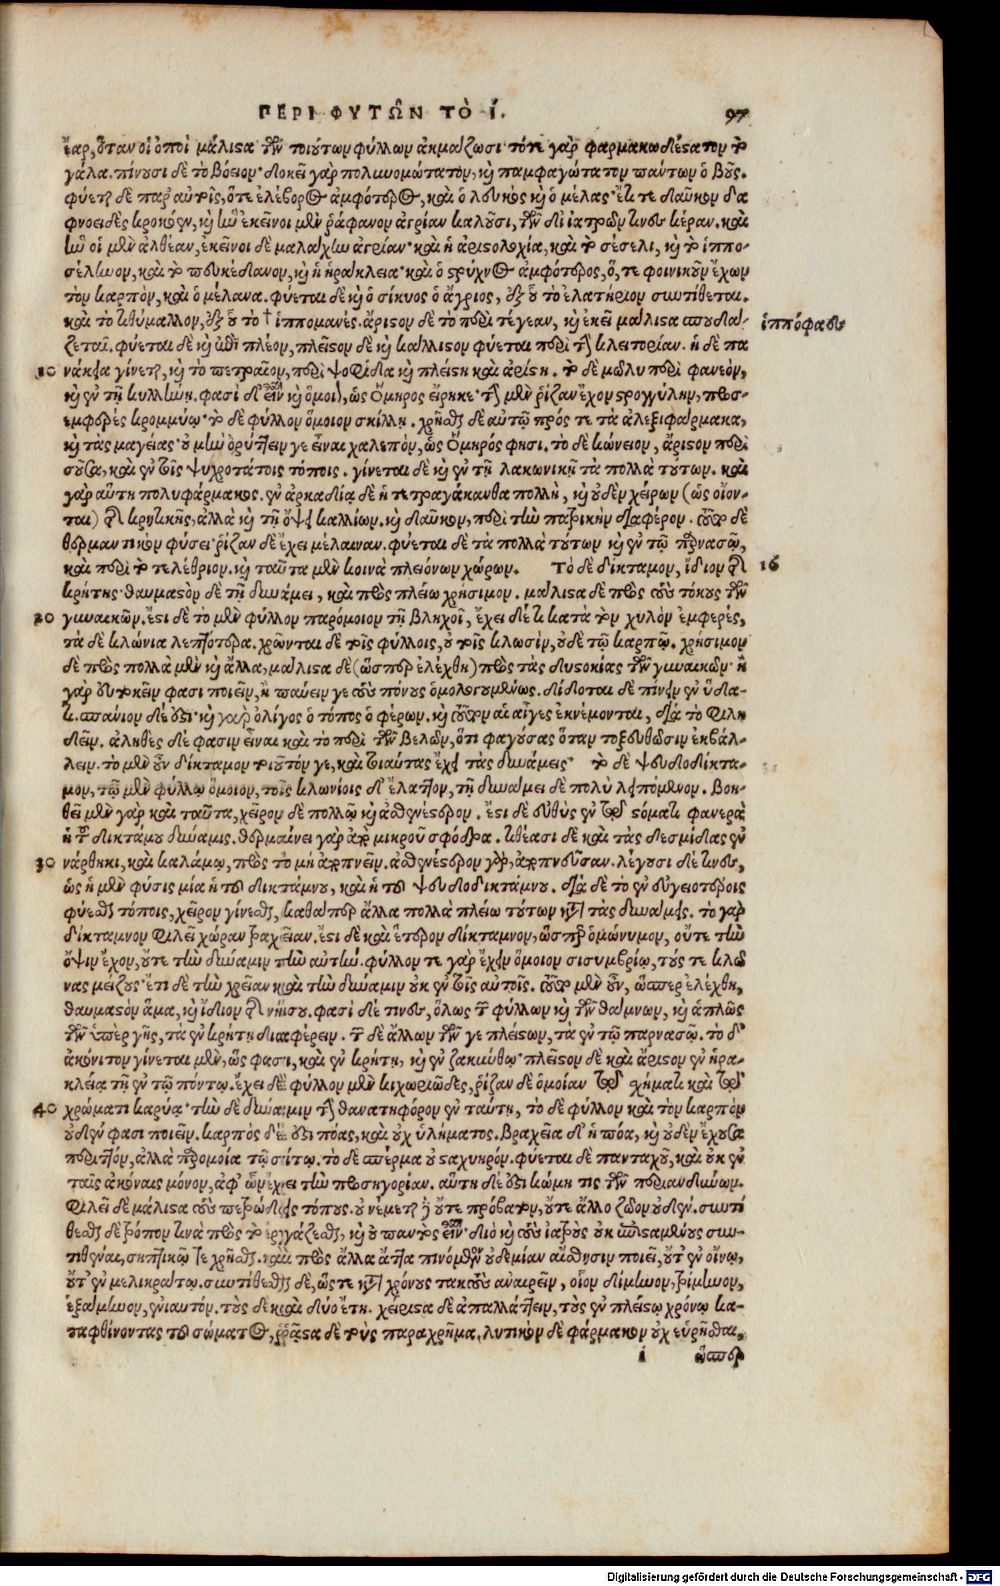 ΠΕΡΙ ΦΥΤΩ͂Ν ΤῸ Ι. 97
ἔαρ, ὅταν οἱ ὀποὶ μάλιστα τῶν τοιούτων φύλλων ἀκμάζωσι· τότε γὰρ φαρμακωδέστατον τὸ
γάλα. πίνουσι δὲ τὸ βόειον· δοκεῖ γὰρ πολυνομώτατον, καὶ παμφαγώτατον πάντων ὁ βοῦς.
φύεται δὲ παρ' αὐτοῖς, ὅτε ἐλέβορος ἀμφότερος, καὶ ὁ λευκὸς καὶ ὁ μέλας· ἔτι τε δαῦκον δα
φνοειδὲς κροκόεν, καὶ ἣν ἐκεῖνοι μὲν ῥάφανον ἀγρίαν καλοῦσι, τῶν δὲ ἰατρῶν τινες κέραν. καὶ
ἣν οἱ μὲν ἀλθέαν, ἐκεῖνοι δὲ μαλάχην ἀγρίαν· καὶ ἡ ἀριστολοχία, καὶ τὸ σέσελι, καὶ τὸ ἱππο-
σέλινον, καὶ τὸ πευκέδανον, καὶ ἡ ἡράκλεια· καὶ ὁ στρύχνος ἀμφότερος, ὅ, τε φοινικοῦν ἔχων
τὸν καρπὸν, καὶ ὁ μέλανα. φύεται δὲ καὶ ὁ σίκυος ὁ ἄγριος, ἐξ οὗ τὸ ἐλατήριον συντίθεται.
καὶ τὸ τιθύμαλλον, ἐξ οὗ τὸ † ἱππομανές. ἄριστον δὲ τὸ περὶ τέγεαν, καὶ ἐκεῖ μάλιστα σπουδά- ἱππόφαες
ζεται. φύεται δὲ καὶ ἐπὶ πλέον, πλεῖστον δὲ καὶ κάλλιστον φύεται περὶ τὴν κλειτορίαν. ἡ δὲ πα
10 νάκεια γίνεται, καὶ τὸ πετραῖον, περὶ ψωφίδα καὶ πλείστη καὶ ἀρίστη. τὸ δὲ μῶλυ περὶ φανεὸν,
καὶ ἐν τῇ κυλλήνῃ. φασὶ δ' εἶναι καὶ ὅμοιον, ὡς Ὅμηρος εἴρηκε· τὴν μὲν ῥίζαν ἔχον στρογγύλην, προσ-
εμφερὲς κρομμύῳ· τὸ δὲ φύλλον ὅμοιον σκίλλῃ. χρῆσθαι δὲ αὐτῷ πρός τε τὰ ἀλεξιφάρμακα,
καὶ τὰς μαγείας· οὐ μὴν ὀρύττειν γε εἶναι χαλεπὸν, ὡς Ὅμηρός φησι. τὸ δὲ κώνειον, ἄριστον περὶ
σοῦσα, καὶ ἐν τοῖς ψυχροτάτοις τόποις. γίνεται δὲ καὶ ἐν τῇ λακωνικῇ τὰ πολλὰ τούτων. καὶ
γὰρ αὕτη πολυφάρμακος. ἐν ἀρκαδίᾳ δὲ ἡ τετραγάκανθα πολλὴ, καὶ οὐδὲν χείρων (ὡς οἴον-
ται) τῆς κρητικῆς, ἀλλὰ καὶ τῇ ὄψει καλλίων. καὶ δαῦκον, περὶ τὴν πατρικὴν διαφέρον. τοῦτο δὲ
θερμαντικὸν φύσει· ῥίζαν δὲ ἔχει μέλαιναν. φύεται δὲ τὰ πολλὰ τούτων καὶ ἐν τῷ παρνασῷ,
καὶ περὶ τὸ τελέθριον. καὶ ταῦτα μὲν κοινὰ πλειόνων χώρων. Τὸ δὲ δίκταμον, ἴδιον τῆς 16
κρήτης· θαυμαστὸν δὲ τῇ δυνάμει, καὶ πρὸς πλείω χρήσιμον. μάλιστα δὲ πρὸς τοὺς τόκους τῶν
20 γυναικῶν. ἔστι δὲ τὸ μὲν φύλλον παρόμοιον τῇ βληχοῖ, ἔχει δέ τι κατὰ τὸν χυλὸν ἐμφερές,
τὰ δὲ κλώνια λεπτότερα. χρῶνται δὲ τοῖς φύλλοις, οὐ τοῖς κλωσὶν, οὐδὲ τῷ καρπῷ. χρήσιμον
δὲ πρὸς πολλὰ μὲν καὶ ἄλλα, μάλιστα δὲ (ὥσπερ ἐλέχθη) πρὸς τὰς δυστοκίας τῶν γυναικῶν· ἢ
γὰρ εὐτοκεῖν φασι ποιεῖν, ἢ παύειν γε τοὺς πόνους ὁμολογουμένως. δίδοται δὲ πίνειν ἐν ὕδα-
τι. σπάνιον δέ ἐστι· καὶ γὰρ ὀλίγος ὁ τόπος ὁ φέρων. καὶ τοῦτον αἱ αἶγες ἐκνέμονται, διὰ τὸ φιλη
δεῖν. ἀληθὲς δέ φασιν εἶναι καὶ τὸ περὶ τῶν βελῶν, ὅτι φαγούσας ὅταν τοξευθῶσιν ἐκβάλ-
λειν. τὸ μὲν οὖν δίκταμον τοιοῦτόν γε, καὶ τοιαύτας ἔχει τὰς δυνάμεις· τὸ δὲ ψευδοδίκτα-
μον, τῷ μὲν φύλλῳ ὅμοιον, τοῖς κλωνίοις δ' ἔλαττον, τῇ δυνάμει δὲ πολὺ λειπόμενον. βοη-
θεῖ μὲν γὰρ καὶ ταῦτα, χεῖρον δὲ πολλῷ καὶ ἀσθενέστερον. ἔστι δὲ εὐθὺς ἐν τῷ στόματι φανερὰ
ἡ τοῦ δικτάμου δύναμις. θερμαίνει γὰρ ἀπὸ μικροῦ σφόδρα. τιθέασι δὲ καὶ τὰς δεσμίδας ἐν
30 νάρθηκι, καὶ καλάμῳ, πρὸς τὸ μὴ ἀποπνεῖν. ἀσθενέστερον γὰρ, ἀποπνεῦσαν. λέγουσι δέ τινες,
ὡς ἡ μὲν φύσις μία ἡ τοῦ δικτάμνου, καὶ ἡ τοῦ ψευδοδικτάμνου. διὰ δὲ τὸ ἐν εὐγειοτέροις
φύεσθαι τόποις, χεῖρον γίνεσθαι, καθάπερ ἄλλα πολλὰ πλείω τούτων κατὰ τὰς δυνάμεις. τὸ γὰρ
δίκταμνον φιλεῖ χώραν τραχεῖαν. ἔστι δὲ καὶ ἕτερον δίκταμνον, ὥσπερ ὁμώνυμον, οὔτε τὴν
ὄψιν ἔχον, οὔτε τὴν δύναμιν τὴν αὐτήν. φύλλον τε γὰρ ἔχειν ὅμοιον σισυμβρίῳ, τούς τε κλῶ
νας μείζους· ἔτι δὲ τὴν χρείαν καὶ τὴν δύναμιν οὐκ ἐν τοῖς αὐτοῖς. τοῦτο μὲν οὖν, ὥσπερ ἐλέχθη,
θαυμαστὸν ἅμα, καὶ ἴδιον τῆς νήσου. φασὶ δέ τινες, ὅλως τῶν φύλλων καὶ τῶν θάμνων, καὶ ἁπλῶς
τῶν ὑπὲρ γῆς, τὰ ἐν κρήτῃ διαφέρειν. τῶν δὲ ἄλλων τῶν γε πλείστων, τὰ ἐν τῷ παρνασῷ. τὸ δ'
ἀκόνιτον γίνεται μὲν, ὥς φασι, καὶ ἐν κρήτῃ, καὶ ἐν ζακύνθῳ· πλεῖστον δὲ καὶ ἄριστον ἐν ἡρα-
κλείᾳ τῇ ἐν τῷ πόντῳ. ἔχει δὲ φύλλον μὲν κιχωριῶδες, ῥίζαν δὲ ὁμοίαν τῷ σχήματι καὶ τῷ
40 χρώματι καρύᾳ· τὴν δὲ δύναμιν τὴν θανατηφόρον ἐν ταύτῃ, τὸ δὲ φύλλον καὶ τὸν καρπὸν
οὐδέν φασι ποιεῖν. καρπὸς δέ ἐστι πόας, καὶ οὐχ ὑλήματος. βραχεῖα δ' ἡ πόα, καὶ οὐδὲν ἔχουσα
περιττόν, ἀλλὰ προσομοία τῷ σίτῳ. τὸ δὲ σπέρμα οὐ σταχυηρόν. φύεται δὲ πανταχοῦ, καὶ οὐκ ἐν
ταῖς ἀκόναις μόνον, ἀφ' ὧν ἔχει τὴν προσηγορίαν. αὕτη δέ ἐστι κώμη τις τῶν περιανδίνων.
φιλεῖ δὲ μάλιστα τοὺς πετρώδεις τόπους. οὐ νέμεται δὲ οὔτε πρόβατον, οὔτε ἄλλο ζῶον οὐδέν. συντί
θεσθαι δὲ τρόπον τινὰ πρὸς τὸ ἐργάζεσθαι, καὶ οὐ παντὸς εἶναι· διὸ καὶ τοὺς ἰατροὺς οὐκ ἐπισταμένους συν-
τιθέναι, σηπτικῷ τε χρῆσθαι. καὶ πρὸς ἄλλα ἄττα πινόμενον οὐδεμίαν αἴσθησιν ποιεῖ, οὔτ' ἐν οἴνῳ,
οὔτ' ἐν μελικράτῳ. συντίθεσθαι δὲ, ὥστε κατὰ χρόνους τακτοὺς ἀναιρεῖν, οἷον δίμηνον, τρίμηνον,
ἑξάμηνον, ἐνιαυτόν. τοὺς δὲ καὶ δύο ἔτη. χείριστα δὲ ἀπαλλάττειν, τοὺς ἐν πλείστῳ χρόνῳ κα-
ταφθίνοντας τοῦ σώματος, ῥᾷστα δὲ τοὺς παραχρῆμα. λυτικὸν δὲ φάρμακον οὐχ εὑρῆσθαι,
i ὥσπερ
Digitalisierung gefördert durch die Deutsche Forschungsgemeinschaft - DFG